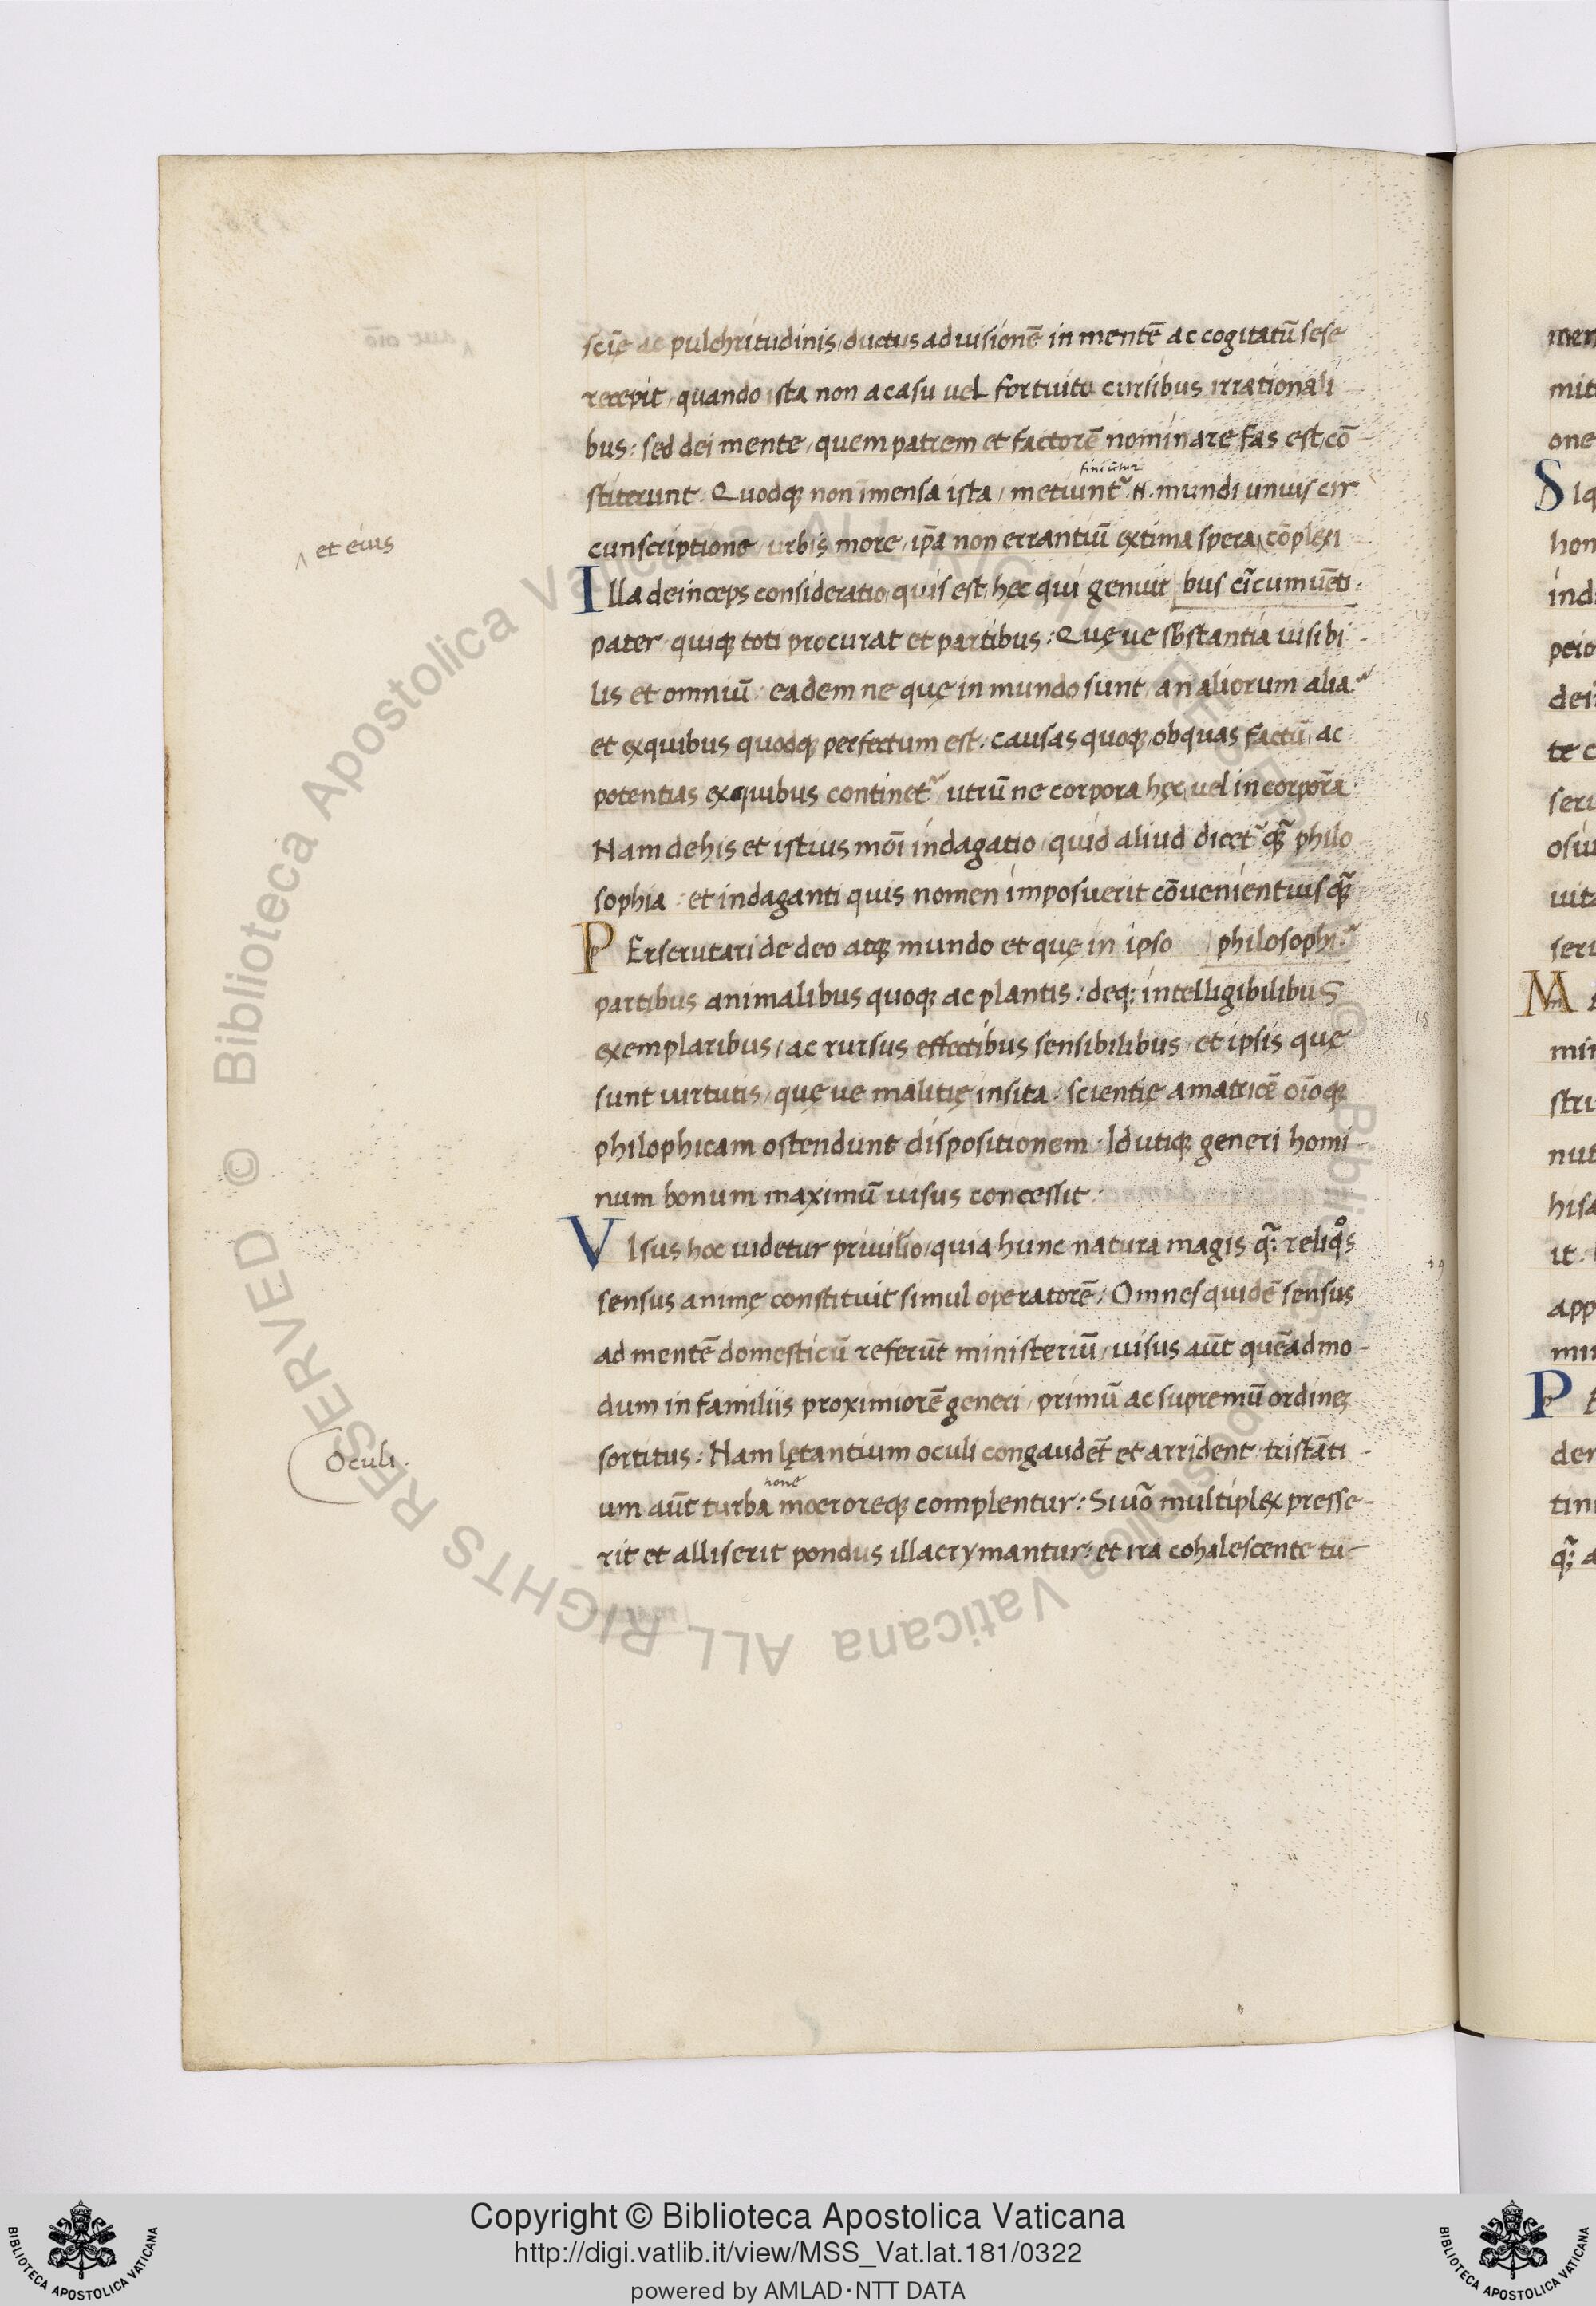 scię ac pulchritudinis, ductus ad uisionē in mentē ac cogitatū sese
recepit, quando ista non a casu uel fortuitu cursibus irrationali
bus: sed dei mente, quem patrem et factorē nominare fas est, cō-
finiūtur
stiterunt. Quodq; non īmensa ista, metiunt᷑ .N. mundi unius cir-
et eius
cunscriptione, urbis more, ip̄a non errantiū extima spera, cōplexi
Illa deinceps consideratio, quis est hęc qui genuit bus circumuēti.
pater, quiq; toti procurat et partibus: Quę ue sb̄stantia uisibi-
lis et omniū: eadem ne quę in mundo sunt, an aliorum alia.
et ex quibus quodq; perfectum est. causas quoq; ob quas factū, ac
potentias ex quibus continet᷑, utrū ne corpora hęc, uel incorporā.
Nam de his et istius mōi indagatio, quid aliud dicet᷑ q̄ philo
sophia: et indaganti quis nomen imposuerit cōuenientius q̄
PErscrutari de deo atq; mundo et quę in ipso philosophi.
partibus animalibus quoq; ac plantis: deq; intelligibilibuS
exemplaribus, ac rursus effectibus sensibilibus, et ipsis quę
sunt uirtutis, quę ue malitię insita. scientię amatricē oīoq;
philophicam ostendunt dispositionem. Id utiq; generi homi-
num bonum maximū uisus concessit.
VIsus hoc uidetur priuilīo, quia hunc natura magis q̄; reliqo̊s
sensus animę constituit simul operatorē: Omnes quidē sensus
ad mentē domesticū referūt ministeriū, uisus aūt quēadmo-
dum in familiis proximiorē generi, primū ac supremū ordinē
sortitus: Nam lętantium oculi congaudēt et arrident, tristāti-
Oculi.
hone
um aūt turba moeroreq; complentur: Si uō multiplex presse-
rit et alliserit pondus illacrymantur: et ira cohalescente tū-
Copyright © Biblioteca Apostolica Vaticana
http://digi.vatlib.it/view/MSS_Vat.lat.181/0322
powered by AMLAD·NTT DATA